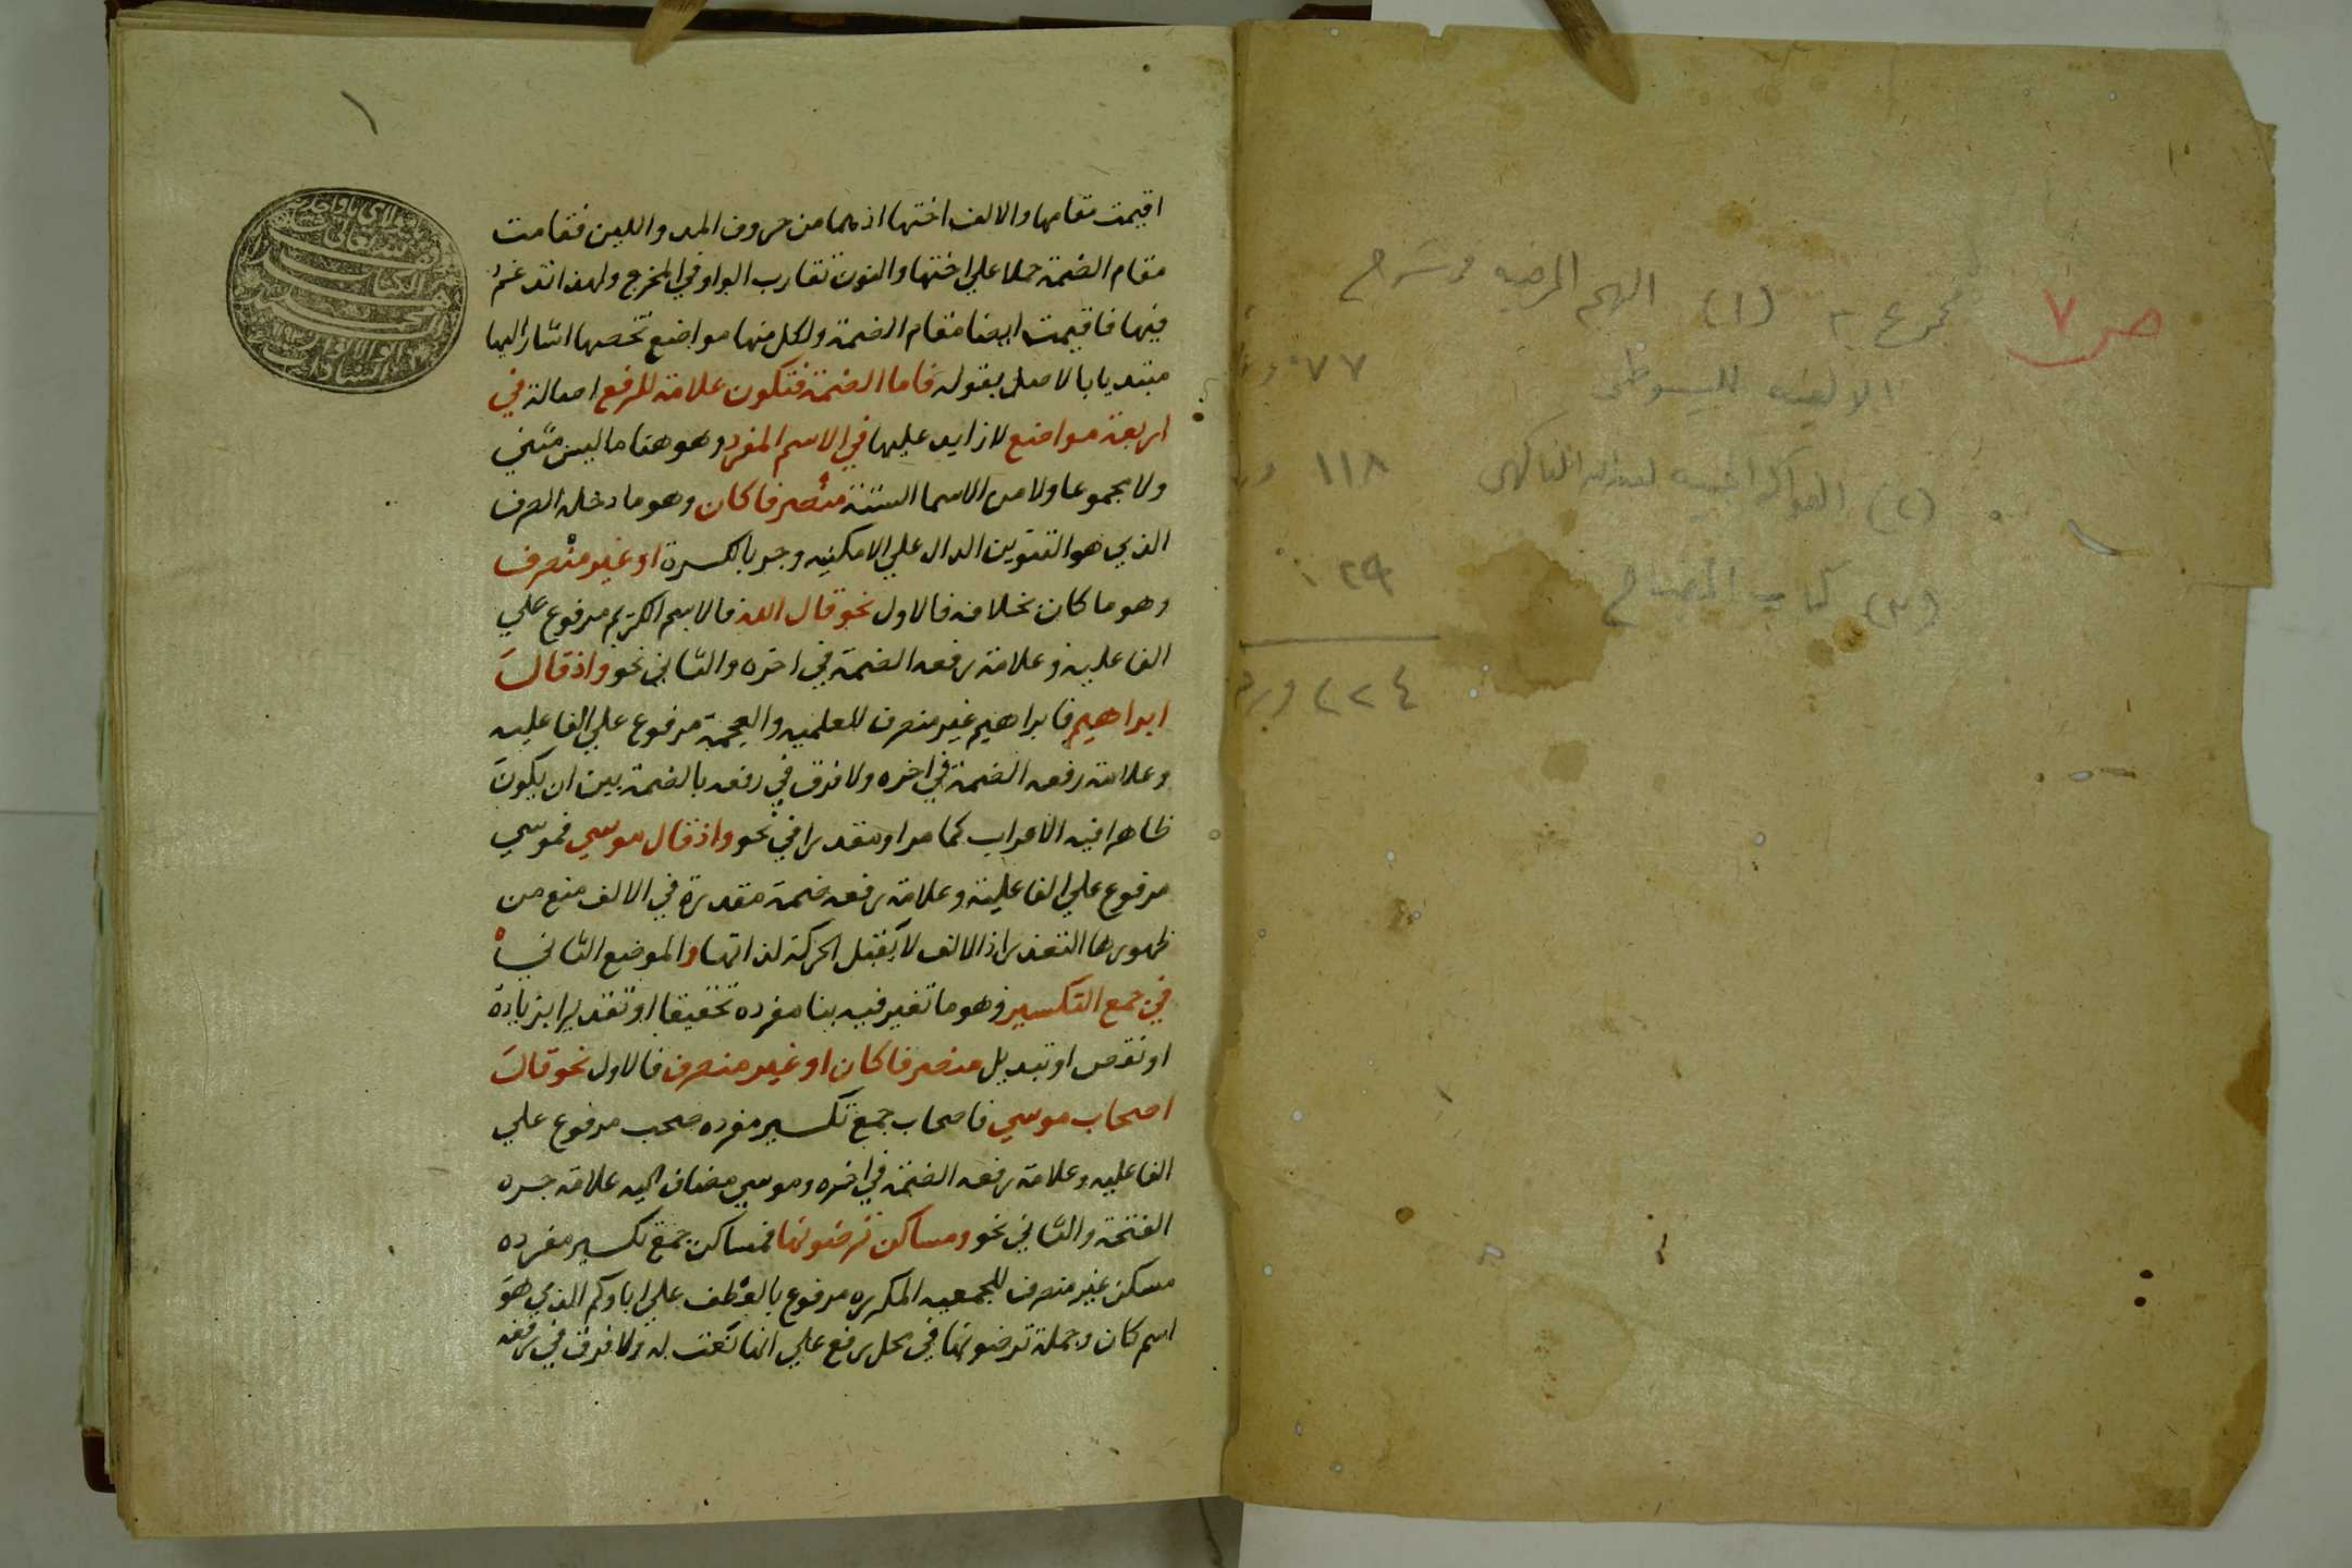 صر ٧
مجموع ٣ (١) البهجة المرضيه في شرح
٠٧٧
الالفيه للسيوطي
(٢) الفواكه الجنيه لعبدالله الفاكهي
١١٨
(٣) كتاب المصباح
٠٢٩
٢٢٤ ورقة
١
اقيمت مقامها والالف اختها اذ هما من حروف المد واللين فقامت
مقام الضمة حملا علي اختها والنون تقارب الواو في المخرج ولهذا تدغم
فيها فاقيمت ايضا مقام الضمة ولكل منها مواضع تخصها اشار اليها
مبتديا بالاصل بقوله فاما الضمة فتكون علامة للرفع اصالة في
اربعة مواضع لا زايد عليها في الاسم المفرد وهو هنا ما ليس مثني
ولا مجموعا ولا من الاسما الستة منصرفا كان وهو ما دخله الصرف
الذي هو التنوين الدال علي الامكنيه وجر بالكسرة او غير منصرف
وهو ما كان بخلافه فالاول نحو قال الله فالاسم الكريم مرفوع علي
الفاعليه وعلامة رفعه الضمة في اخره والثاني نحو واذ قال
ابراهيم فابراهيم غير منصرف للعلميه والعجمة مرفوع علي الفاعليه
وعلامة رفعه الضمة في اخره ولا فرق في رفعه بالضمة بين ان يكون
ظاهرا فيه الاعراب كما مر او مقدرا في نحو واذ قال موسي فموسي
مرفوع علي الفاعلية وعلامة رفعه ضمة مقدرة في الالف منع من
ظهورها التعذر اذ الالف لا يقبل الحركة لذاتها والموضع الثاني
في جمع التكسير وهو ما تغير فيه بنا مفرده تحقيقا او تقديرا بزيادة
او نقص او تبديل منصرفا كان او غير منصرف فالاول نحو قال
اصحاب موسي فاصحاب جمع تكسير مفرده صحب مرفوع علي
الفاعليه وعلامة رفعه الضمة في اخره وموسي مضاف اليه علامة جره
الفتحة والثاني نحو ومساكن ترضونها فمساكن جمع تكسير مفرده
مسكن غير منصرف للجمعيه المكرره مرفوع بالعطف علي اباوكم الذي هو
اسم كان وجملة ترضونها في محل رفع علي انها نعت له ولا فرق في رفعه